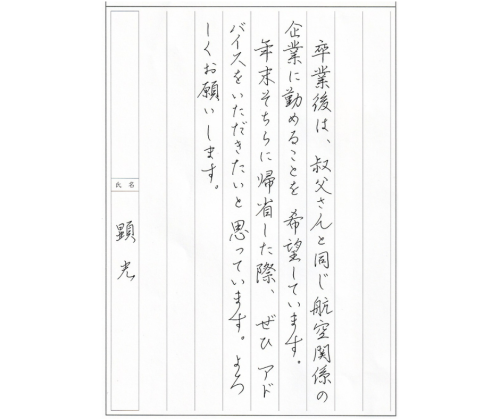 卒業後は、叔父さんと同じ航空関係の
企業に勤めることを希望しています。
年末そちらに帰省した際、ぜひアド
バイスをいただきたいと思っています。よろ
しくお願いします。
氏名
顕光